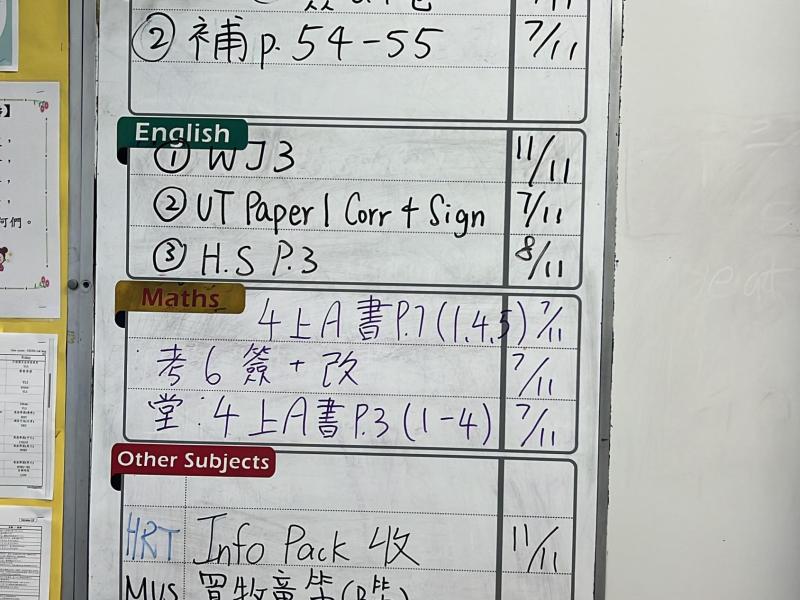 ② 補 p. 54-55 7/11
English
① WJ3 11/11
② UT Paper 1 Corr + Sign 7/11
③ H.S P.3 8/11
Maths
4上A書P.7(1,4,5) 7/11
考6 簽 + 改 7/11
堂: 4上A書P.3 (1-4) 7/11
Other Subjects
HRT Info Pack 收 11/11
MUS 買牧童笛
何們。